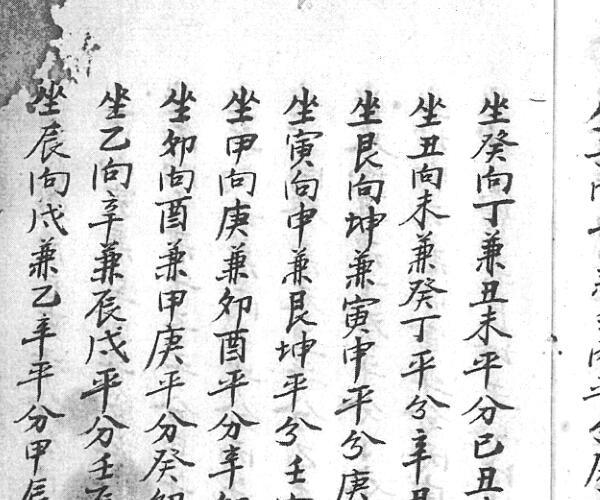 坐癸向丁兼丑未平分己丑
坐丑向未兼癸丁平分辛丑
坐艮向坤兼寅申平分庚
坐寅向申兼艮坤平分壬
坐甲向庚兼卯酉平分辛卯
坐卯向酉兼甲庚平分癸卯
坐乙向辛兼辰戌平分壬辰
坐辰向戌兼乙辛平分甲辰